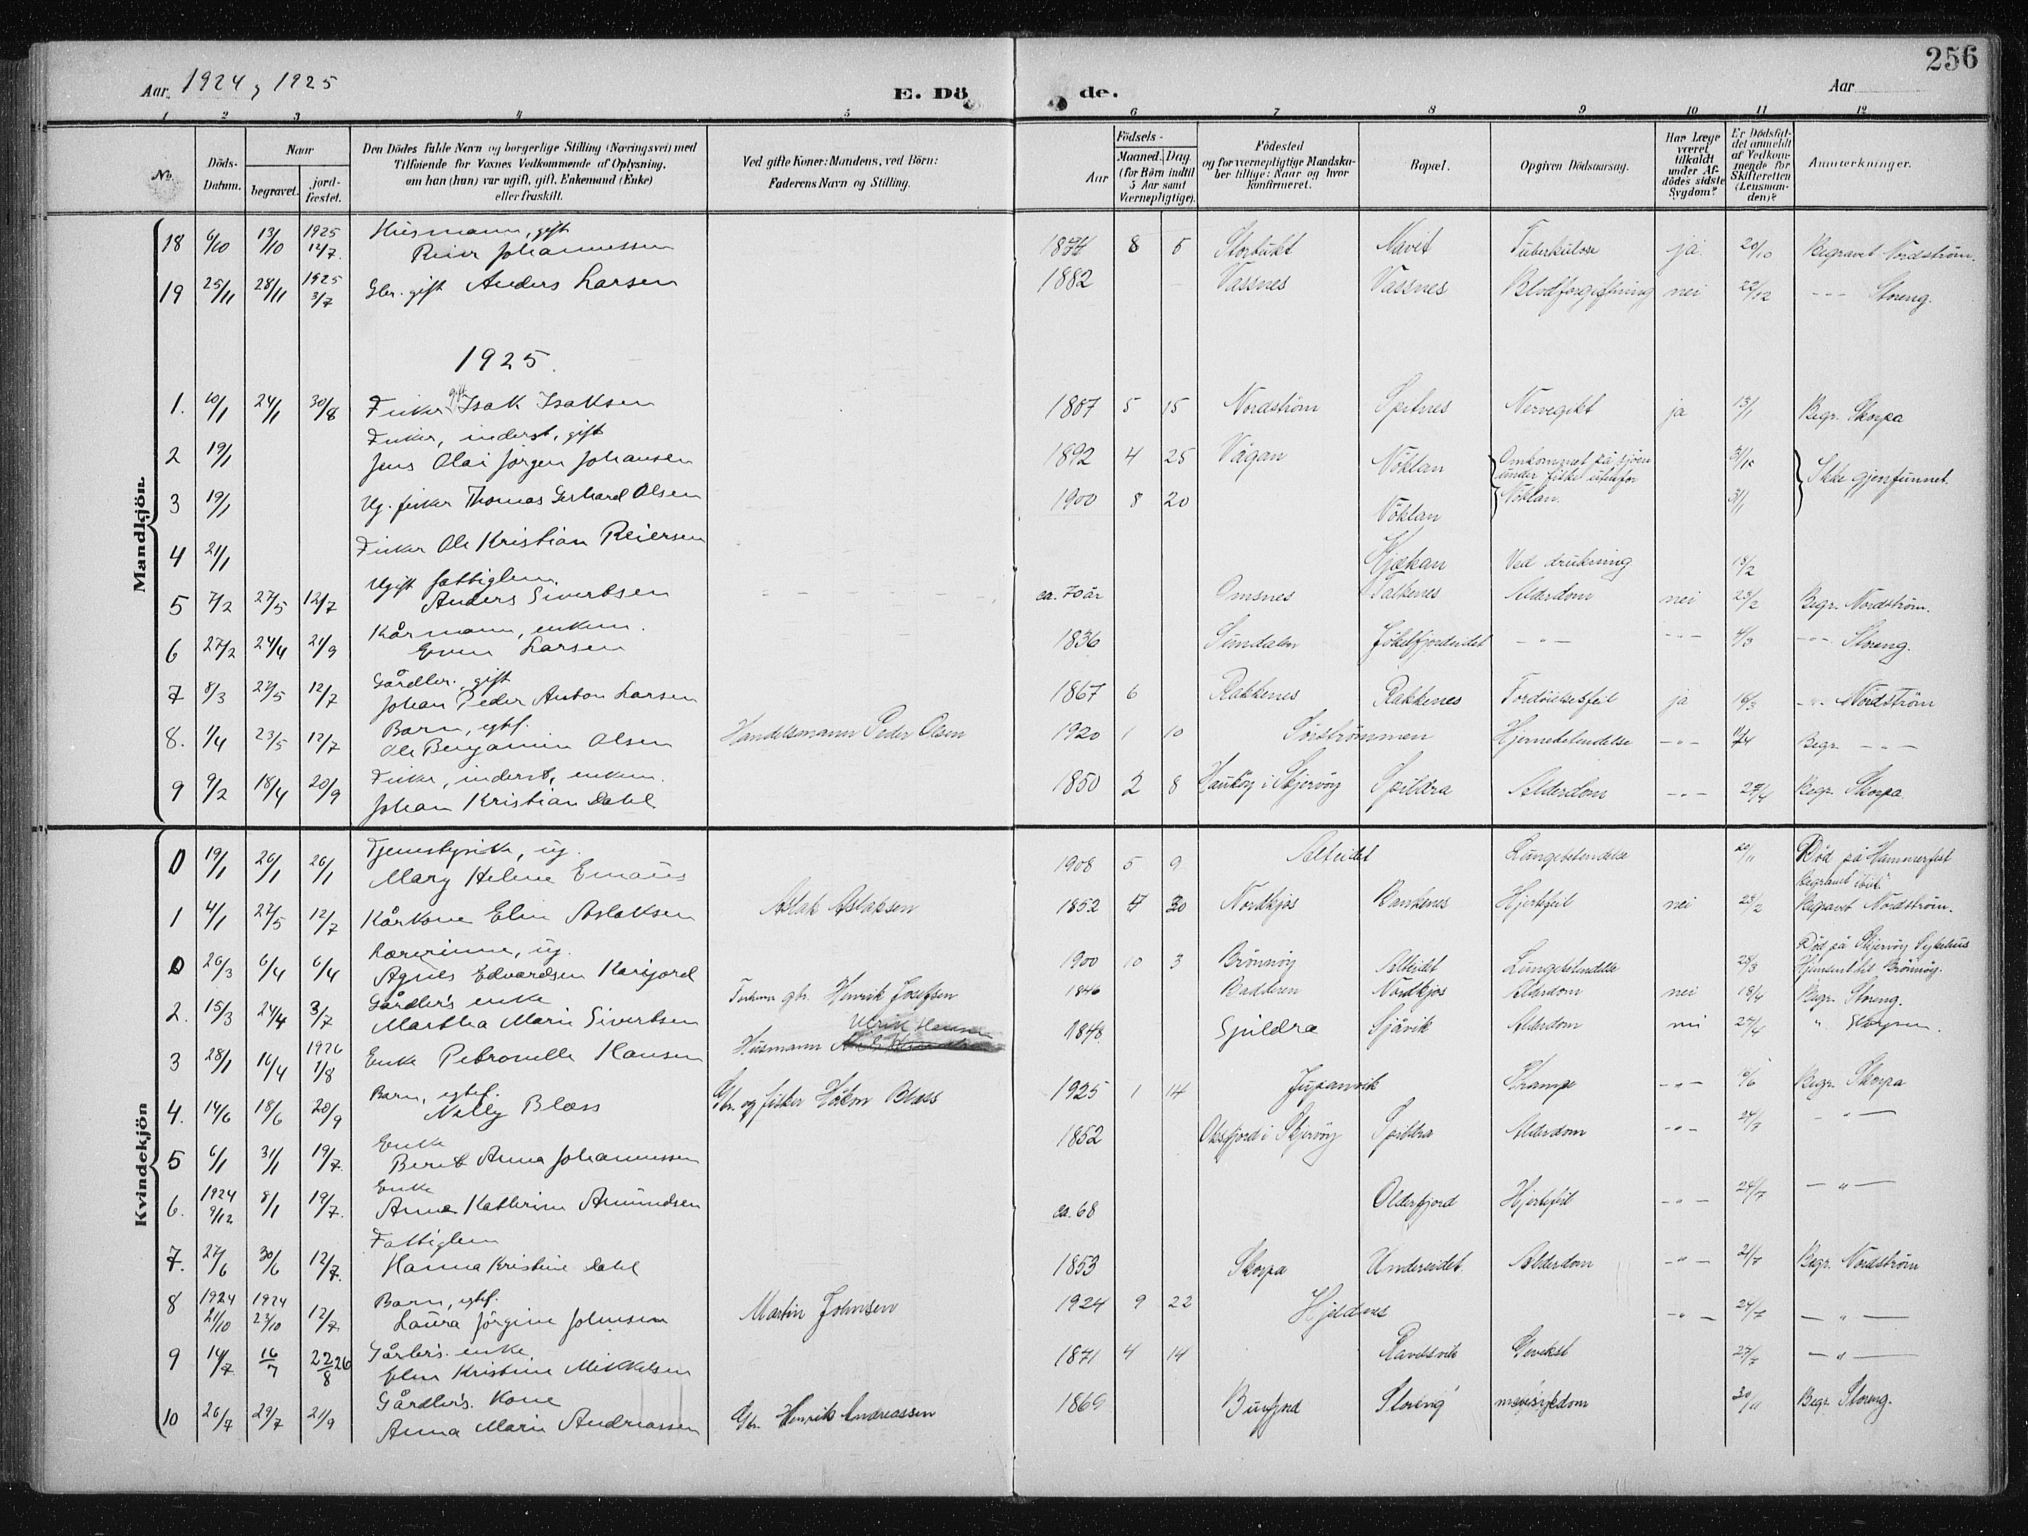 256
Aar 1924, 1925
E. Dö
de.
Aar
1 2 3 4 5 6 7 8 9 10 11 12
No.
Döds-Datum.
Naar
begravet.
jord-fæstet.
Den Dödes fulde Navn og borgerlige Stilling (Næringsvei) med
Tilföiende for Voxnes Vedkommende af Oplysning,
om han (hun) var ugift, gift, Enkemand (Enke)
eller fraskilt.
Ved gifte Koner: Mandens, ved Börn:
Faderens Navn og Stilling.
Födsels-
Aar
Maaned. Dag
(for Börn indtil
5 Aar samt
Værnepligtige).
Födested
og for værnepligtige Mandska-
ber tillige: Naar og hvor
konfirmeret.
Bopæl.
Opgiven Dödsaarsag.
Har Læge
været
tilkaldt
under Af-
dödes sidste
Sygdom?
Er Dödsfal-
det anmeldt
af Vedkom-
mende for
Skifteretten
(Lensman-
den)?
Anmærkninger.
Mandkjön.
18 6/10 13/10 1925 12/7. Husmann, gift Reier Johannessen 8 5 Storbukt Navit Tuberkulose ja 20/10 Begravet Nordstrøm.
19 25/11 28/11 1925 3/7 Gbr. gift Anders Larsen 1882 Vassnes Vassnes Blodforgiftning nei 22/12 - - - Storeng.
1925.
1. 10/1 24/1 30/8 Fisker gift Isak Isaksen 1867 5 15 Nordstrøm Spilnes Nervegikt ja 13/1 Begr. Skorpa
2 19/1 Fisker, inderst, gift Jens Olai Jørgen Johansen 1892 4 25 Vågan Nöklan Omkommet på sjøen under fiske utenfor Nöklan. Ikke gjenfunnet.
3 19/1 Ug. fisker Thomas Gerhard Olsen 1900 8 20 Nöklan 31/1
4 21/1 Fisker Ole Kristian Reiersen Kjækan Ved drukning 18/2
5 7/2 27/5 12/7 Ugift fattiglem. Anders Sivertsen ca. 70 år Omsnes Talkenes Alderdom nei 23/2 Begr. Nordstrøm.
6 27/2 24/4 21/9 Kårmann, enkem. Even Larsen 1836 Sundalen Jøkelfjordeidet - " - - " - 4/3 - " - Storeng.
7 8/3 27/5 12/7 Gårdbr. gift Johan Peder Anton Larsen 1867 6 Rakkenes Rakkenes Fordøielsesfeil ja 16/3 - " - Nordstrøm
8. 1/4 23/5 12/7 Barn, egtef. Ole Benjamin Olsen Handelsmann Peder Olsen 1920 1 10 Sørstrømmen Hjernebetendelse - " - 11/4 Begr. - " -
9 9/2 18/4 20/9 Fisker, inderst, enkem. Johan Kristian Dahl 1850 2 8 Hauköy i Skjervöy Spildra Alderdom - " - 27/4 Begr. Skorpa
Kvindekjön
0 19/1 26/1 26/1 Tjenestepike, ug. Mary Helene Emaus 1908 5 9 Alteidet Lungebetendelse Död på Hammerfest begravet ibid.
1 4/1 27/5 12/7 Kårkone Elin Aslaksen Aslak Aslaksen 1852 7 30 Nordkjos Bankenes Hjertefeil nei 23/2 Begravet Nordstrøm.
0 26/3 6/4 6/4 Lærerinne, ug. Agnes Edvardsen Karijord 1900 10 3 Brönnöy Alteidet Lungebetendelse 28/3 Död på Skjervöy Sykehus Hjemsent til Brönnöy.
2. 15/3 24/4 3/7 Gårdbr's enke Martha Marie Sivertsen gbr. Henrik Josefsen 1846 Badderen Nordkjos Alderdom nei 18/4 Begr. Storeng.
3 28/1 16/4 1926 1/8 Enke Petronelle Hansen Husmann Ulrik Hansen 1848 Spildra Sjåvik Alderdom nei 27/4 " Skorpen.
4. 14/6 18/6 20/9 Barn, egtef. Nelly Blæss Gbr. og fisker Håkon Blæs 1925 1 14 Jupanvik Krampe - " - Begr. Skorpa
5 6/1 31/1 19/7. Enke Berit Anna Johannessen 1852 Oksfjord i Skjervöy Spildra Alderdom - " - 24/7 - " -
6. 1924 9/12 8/1 19/7. Enke Anne Kathrine Amundsen ca. 68 Olderfjord Hjertefeil - " - 24/7 - " -
7. 27/6 30/6 12/7. Fattiglem Hanna Kristine Dahl 1853 Skorpa Undereidet Alderdom - " - 21/7 Begr. Nordstrøm
8 1924 21/10 1924 23/10 12/7. Barn, egtef. Laura Jörgine Johnsen Martin Johnsen 1924 9 22 Hjeldnes - " - 24/7 - " -
9 14/7 16/7 22/8 26 Gårbr's. enke Elen Kristine Mikkelsen 1871 4 14 Ravelsvik Gevekst 27/7 - " -
10 26/7 29/7 21/9 Gårdbr's. Kone Anna Marie Andreassen Gbr. Henrik Andreassen 1869 Burfjord Storeng mavesykdom 30/11 Begr. Storeng.